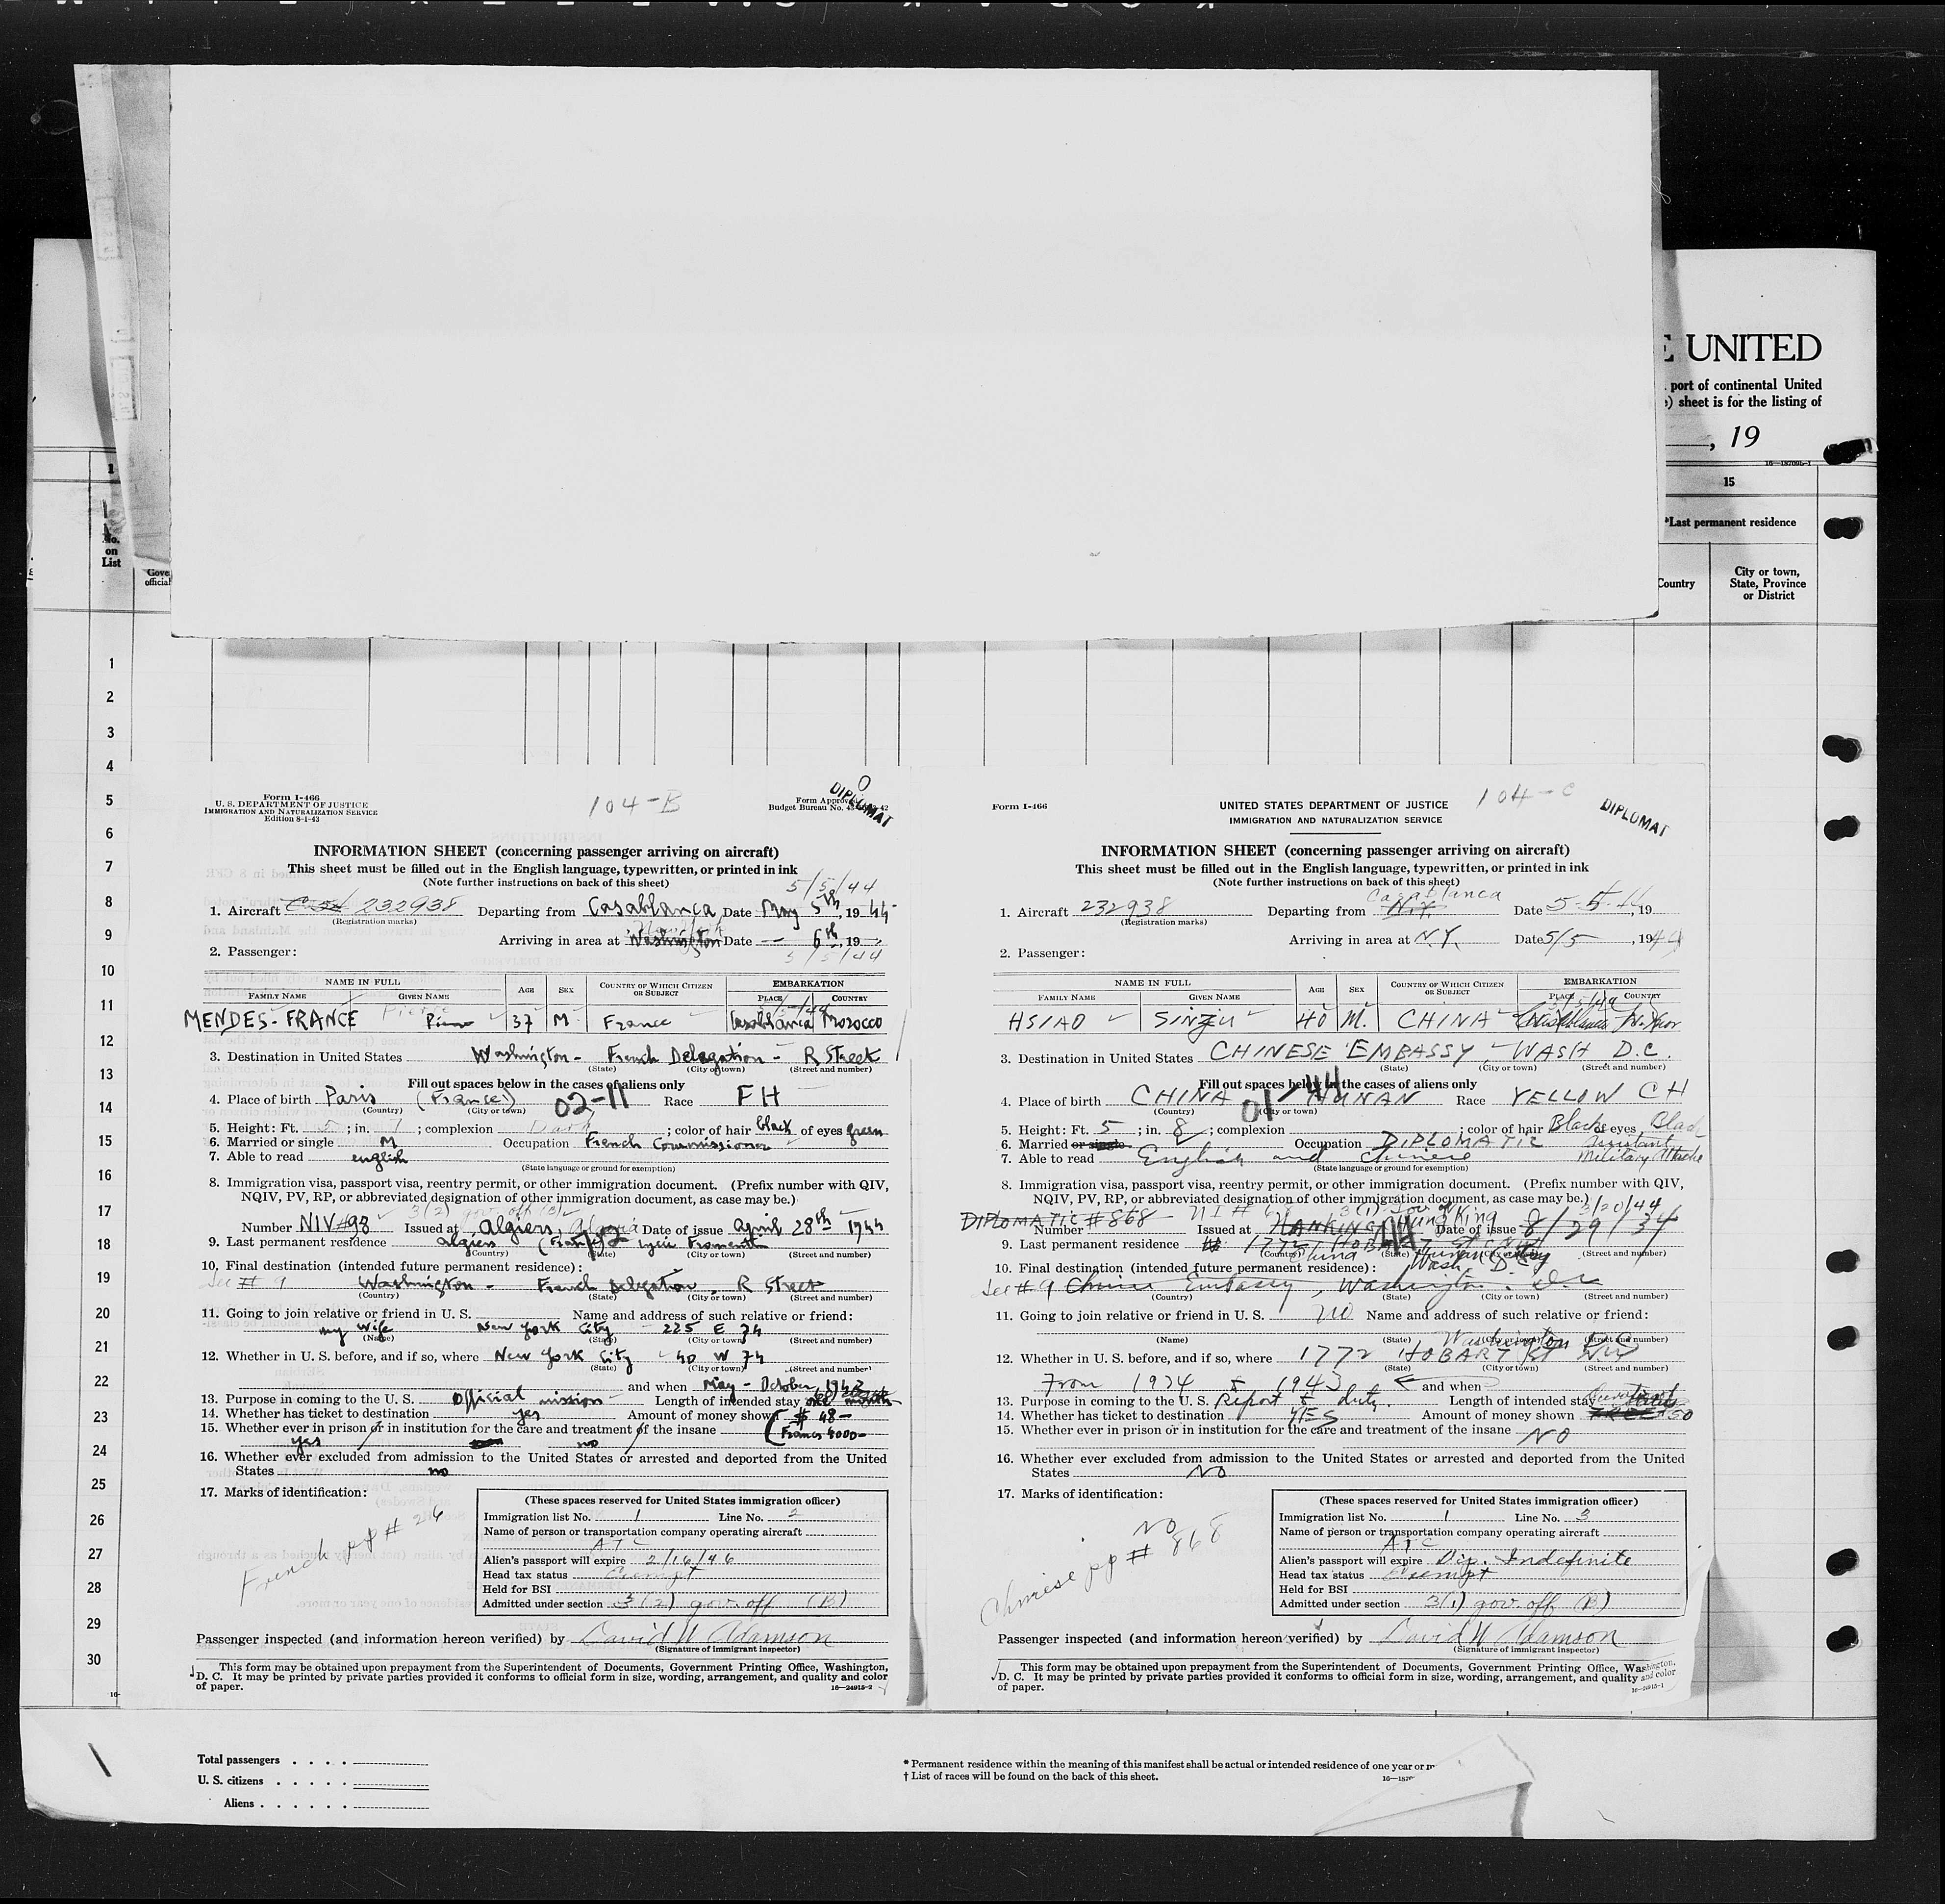 E UNITED
port of continental United
) sheet is for the listing of
, 19
16—18709b-1
15
*Last permanent residence
Country
City or town,
State, Province
or District
No.
on
List
Gove
official
1
2
3
4
5
6
7
8
9
10
11
12
13
14
15
16
17
18
19
20
21
22
23
24
25
26
27
28
29
30
Form I-466
U. S. DEPARTMENT OF JUSTICE
IMMIGRATION AND NATURALIZATION SERVICE
Edition 8-1-43
104-B
Form Approved
Budget Bureau No.
DIPLOMAT
INFORMATION SHEET (concerning passenger arriving on aircraft)
This sheet must be filled out in the English language, typewritten, or printed in ink
(Note further instructions on back of this sheet)
5/5/44
1. Aircraft C-54 232938 Departing from Casablanca Date May 5th, 1944
(Registration marks)
Arriving in area at Washington Date — 6th, 19
5/5/44
2. Passenger:
NAME IN FULL AGE SEX COUNTRY OF WHICH CITIZEN OR SUBJECT EMBARKATION
FAMILY NAME GIVEN NAME PLACE COUNTRY
MENDES-FRANCE Pierre 37 M France Casablanca Morocco
3. Destination in United States Washington - French Delegation - R Street
(State) (City or town) (Street and number)
Fill out spaces below in the cases of aliens only
4. Place of birth Paris (France) 02-11 Race FH
(Country) (City or town)
5. Height: Ft. 5; in. 7; complexion Dark; color of hair black of eyes green
6. Married or single M Occupation French Commissioner
7. Able to read english
(State language or ground for exemption)
8. Immigration visa, passport visa, reentry permit, or other immigration document. (Prefix number with QIV,
NQIV, PV, RP, or abbreviated designation of other immigration document, as case may be.)
3(2) gov. off (B)
Number NIV #98 Issued at Algiers, Algeria Date of issue April 28th 1944
9. Last permanent residence Algiers
(Country) (State) (Street and number)
10. Final destination (intended future permanent residence):
See # 9 Washington - French Delegation, R Street
(Country) (State) (City or town) (Street and number)
11. Going to join relative or friend in U. S. Name and address of such relative or friend:
my wife New York City - 225 E 74
(Name) (State) (City or town) (Street and number)
12. Whether in U. S. before, and if so, where New York City 40 W 74
(State) (City or town) (Street and number)
and when May - October, 1942
13. Purpose in coming to the U. S. Official mission Length of intended stay
14. Whether has ticket to destination yes Amount of money shown $ 48-
15. Whether ever in prison or in institution for the care and treatment of the insane Francs 4000-
yes no
16. Whether ever excluded from admission to the United States or arrested and deported from the United
States no
17. Marks of identification:
French pp # 26
(These spaces reserved for United States immigration officer)
Immigration list No. 1 Line No. 2
Name of person or transportation company operating aircraft
ATC
Alien's passport will expire 2/16/46
Head tax status Exempt
Held for BSI
Admitted under section 3(2) gov. off (B)
Passenger inspected (and information hereon verified) by David W Adamson
(Signature of immigrant inspector)
This form may be obtained upon prepayment from the Superintendent of Documents, Government Printing Office, Washington,
D. C. It may be printed by private parties provided it conforms to official form in size, wording, arrangement, and quality and color
of paper. 16—24915-2
Form I-466
UNITED STATES DEPARTMENT OF JUSTICE
IMMIGRATION AND NATURALIZATION SERVICE
104-C
DIPLOMAT
INFORMATION SHEET (concerning passenger arriving on aircraft)
This sheet must be filled out in the English language, typewritten, or printed in ink
(Note further instructions on back of this sheet)
Casablanca
1. Aircraft 232938 Departing from N.Y. Date 5-5-44, 19
(Registration marks)
Arriving in area at N.Y. Date 5/5, 1944
2. Passenger:
NAME IN FULL AGE SEX COUNTRY OF WHICH CITIZEN OR SUBJECT EMBARKATION
FAMILY NAME GIVEN NAME PLACE COUNTRY
HSIAO SINZU 40 M. CHINA Casablanca
3. Destination in United States CHINESE EMBASSY, WASH D.C.
(State) (City or town) (Street and number)
Fill out spaces below in the cases of aliens only
4. Place of birth CHINA HUNAN Race YELLOW CH
(Country) (City or town)
01-44
5. Height: Ft. 5; in. 8; complexion; color of hair Black of eyes Black
6. Married or single Occupation DIPLOMATIC Assistant
7. Able to read English and Chinese Military Attache
(State language or ground for exemption)
8. Immigration visa, passport visa, reentry permit, or other immigration document. (Prefix number with QIV,
NQIV, PV, RP, or abbreviated designation of other immigration document, as case may be.)
3/20/44
DIPLOMATIC # 868 Issued at NANKING Chungking Date of issue 8/29/34
Number
9. Last permanent residence # 1772 HOBART
(Country) (State) (Street and number)
10. Final destination (intended future permanent residence): Wash. D.C.
See # 9 Chinese Embassy, Washington. D.C.
(Country) (State) (City or town) (Street and number)
11. Going to join relative or friend in U. S. NO Name and address of such relative or friend:
(Name) (State) (City or town) (Street and number)
Washington
12. Whether in U. S. before, and if so, where 1772 HOBART St NW
(State) (City or town) (Street and number)
From 1934 to 1943 and when
13. Purpose in coming to the U. S. Report to duty. Length of intended stay
14. Whether has ticket to destination YES Amount of money shown
15. Whether ever in prison or in institution for the care and treatment of the insane NO
16. Whether ever excluded from admission to the United States or arrested and deported from the United
States NO
17. Marks of identification:
NO
Chinese pp # 868
(These spaces reserved for United States immigration officer)
Immigration list No. 1 Line No. 3
Name of person or transportation company operating aircraft
ATC
Alien's passport will expire Dip. Indefinite
Head tax status Exempt
Held for BSI
Admitted under section 3(1) gov. off (B)
Passenger inspected (and information hereon verified) by David W Adamson
(Signature of immigrant inspector)
This form may be obtained upon prepayment from the Superintendent of Documents, Government Printing Office, Washington,
D. C. It may be printed by private parties provided it conforms to official form in size, wording, arrangement, and quality and color
of paper. 16—24915-1
Total passengers . . . .
U. S. citizens . . . . .
Aliens . . . . . .
* Permanent residence within the meaning of this manifest shall be actual or intended residence of one year or m
† List of races will be found on the back of this sheet.